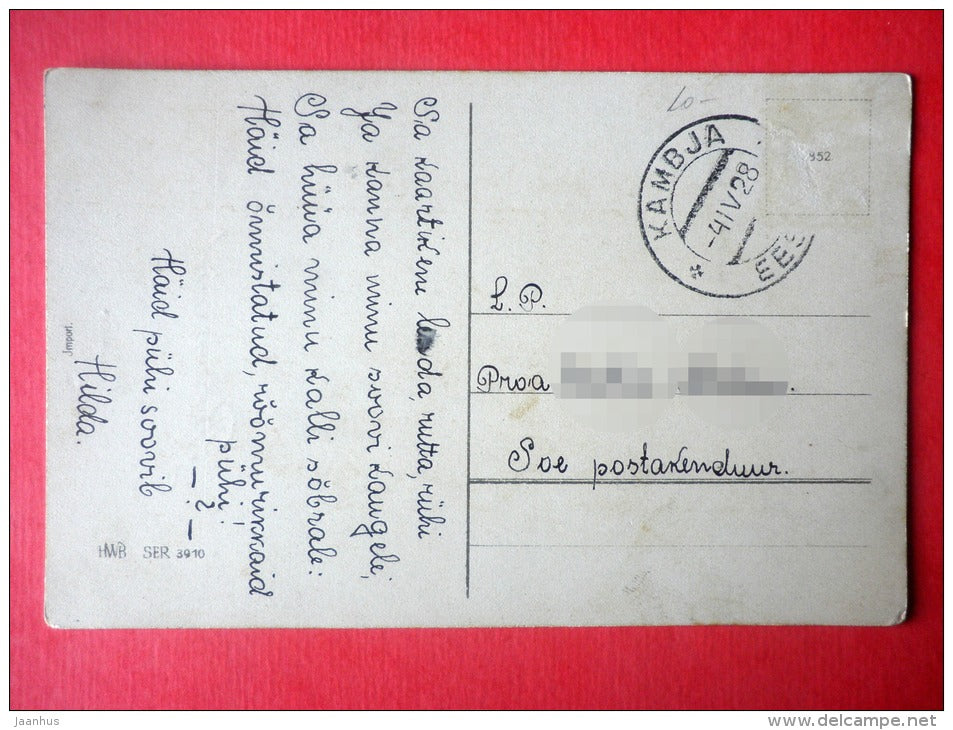 Sa kaartikeni lenda, rutta, rühi
Ja kanna minu soovi kaugele;
Sa hüüa minu kalli sõbrale:
Häid õnnistatud, rõõmurikkaid
pühi!
— ? —
Häid pühi soovib
Hilda.
Import.
HWB SER 3910
10-
KAMBJA
-4IV28
EES
352
L. P.
Proa
Soe postakenduur.
Jaanhus
delcampe.net